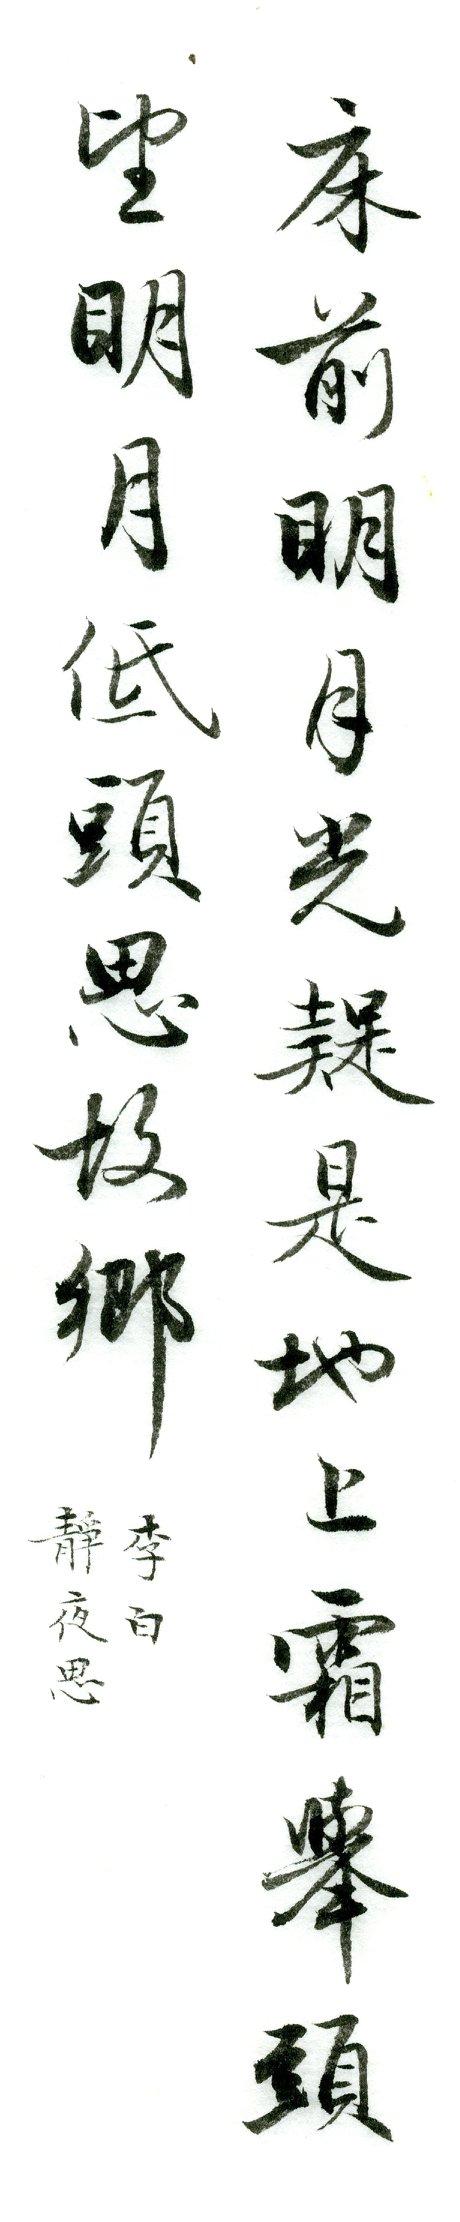 床前明月光疑是地上霜舉頭
望明月低頭思故鄉
李白
靜夜思